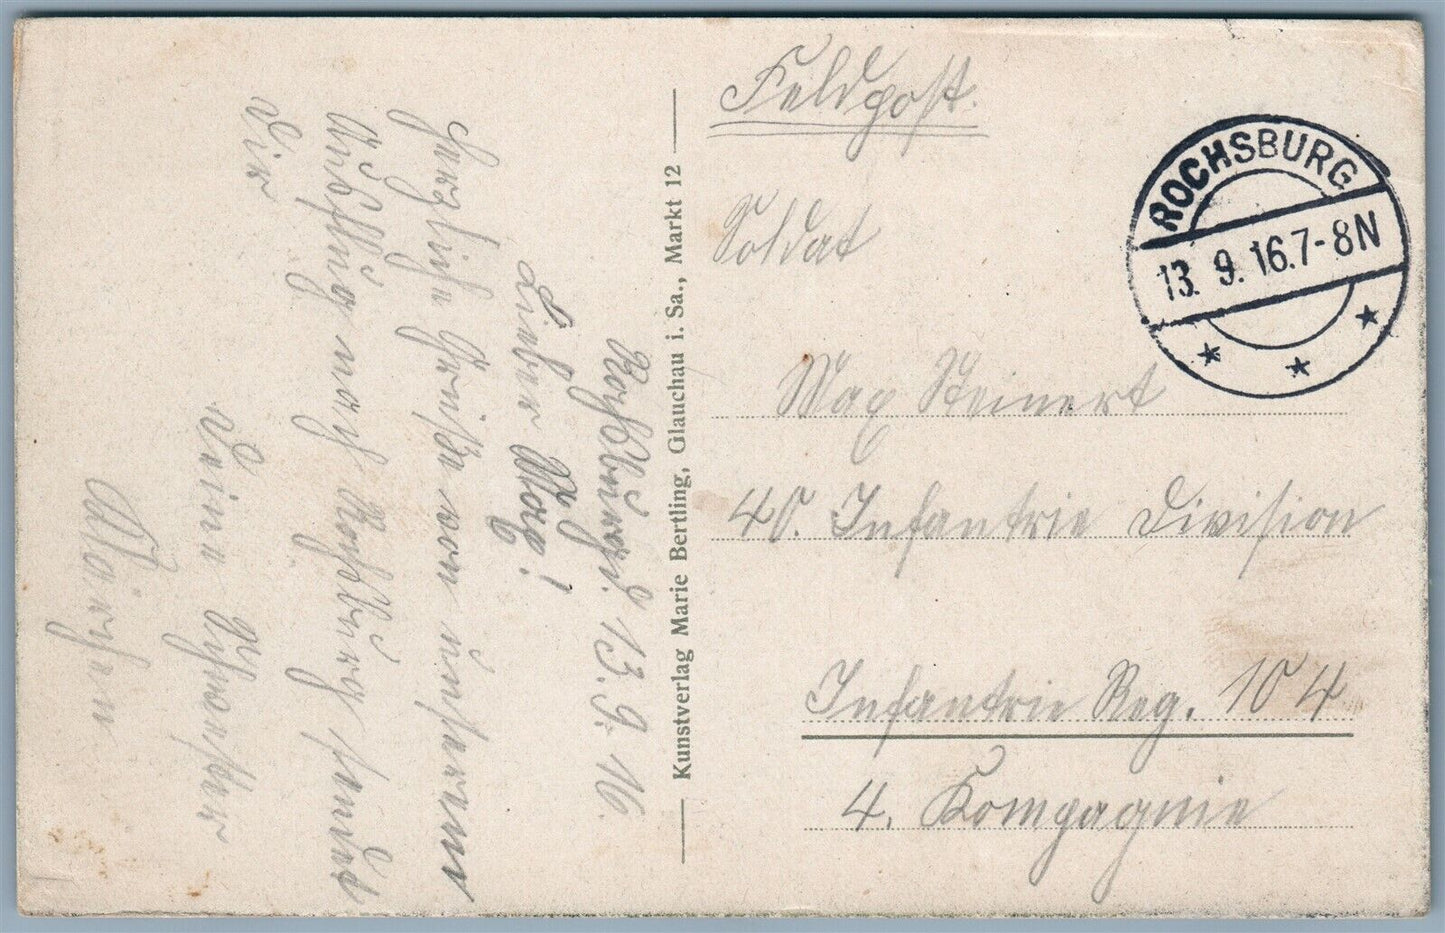 Feldpost.
Soldat
Max Steinert
40. Infantrie Division
Infantrie Reg. 104
4. Kompagnie
ROCHSBURG
13. 9. 16. 7-8N
Kunstverlag Marie Bertling, Glauchau i. Sa., Markt 12
Rochsburg d. 13. 9. 16.
Lieber Max!
Herzliche Grüße von unserem
Ausflug nach Rochsburg sendet
Dir
Deine Schwester